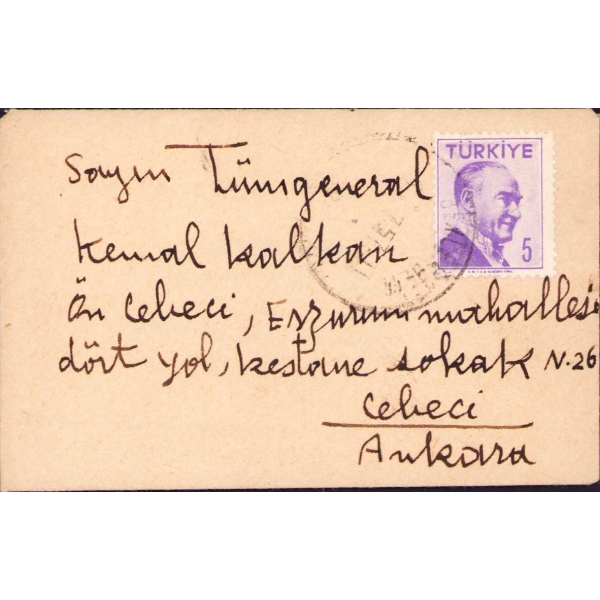 Sayın Tümgeneral
Kemal Kalkan
Ön Cebeci, Erzurum mahallesi
dört yol, kestane sokak N.26
Cebeci
Ankara
TÜRKİYE
5